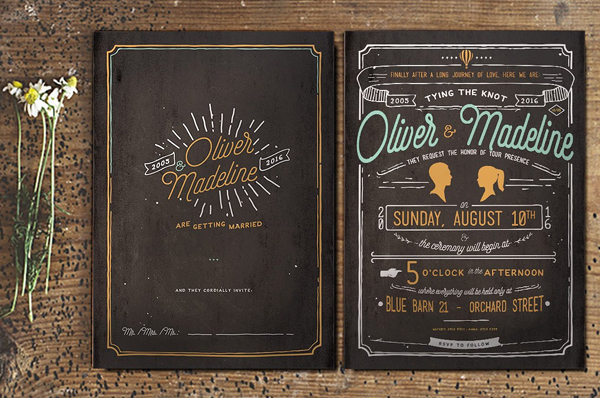 Oliver
2005 & 2016
Madeline
ARE GETTING MARRIED
...
AND THEY CORDIALLY INVITE.
Mr. /Mrs. /Ms.:
FINALLY AFTER A LONG JOURNEY OF LOVE, HERE WE ARE
2005 TYING THE KNOT 2016
Oliver & Madeline
THEY REQUEST THE HONOR OF YOUR PRESENCE
on
20 SUNDAY, AUGUST 10TH 16
&
the ceremony will begin at
5 O'CLOCK in the AFTERNOON
where everything will be held only at
BLUE BARN 21 - ORCHARD STREET
RSVP TO FOLLOW